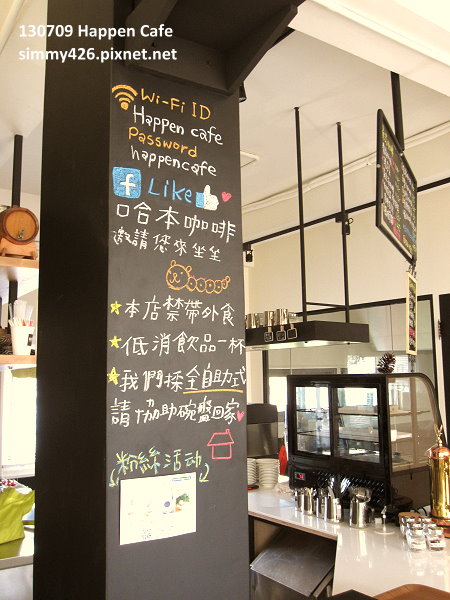 130709 Happen Cafe
simmy426.pixnet.net
Wi-Fi ID
Happen cafe
Password
happencafe
f Like
哈本咖啡
邀請您來坐坐
本店禁帶外食
低消飲品一杯
我們採全自助式
請協助碗盤回家
粉絲活动